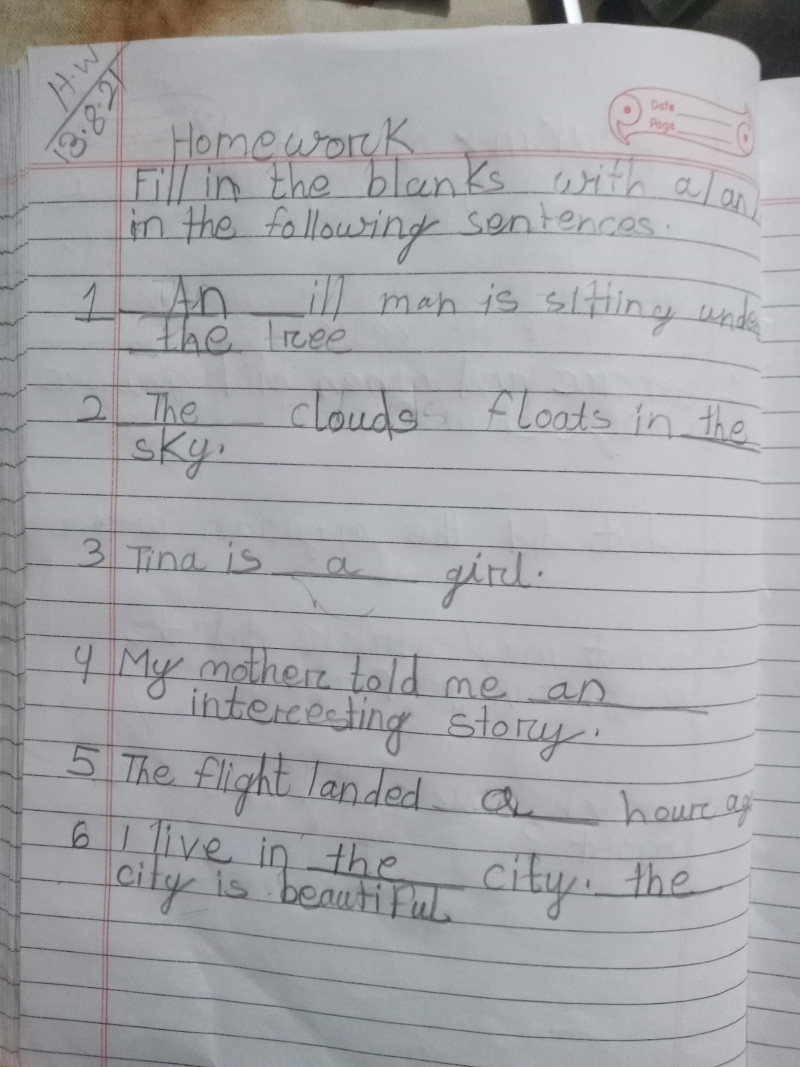 H.W
13.8.21
Date
Page
Homework
Fill in the blanks with a/an/
in the following sentences.
1 An ill man is sitting unde
the tree
2 The clouds floats in the
sky.
3 Tina is a girl.
4 My mother told me an
interecting story.
5 The flight landed a hour ag
6 I live in the city. the
city is beautiful